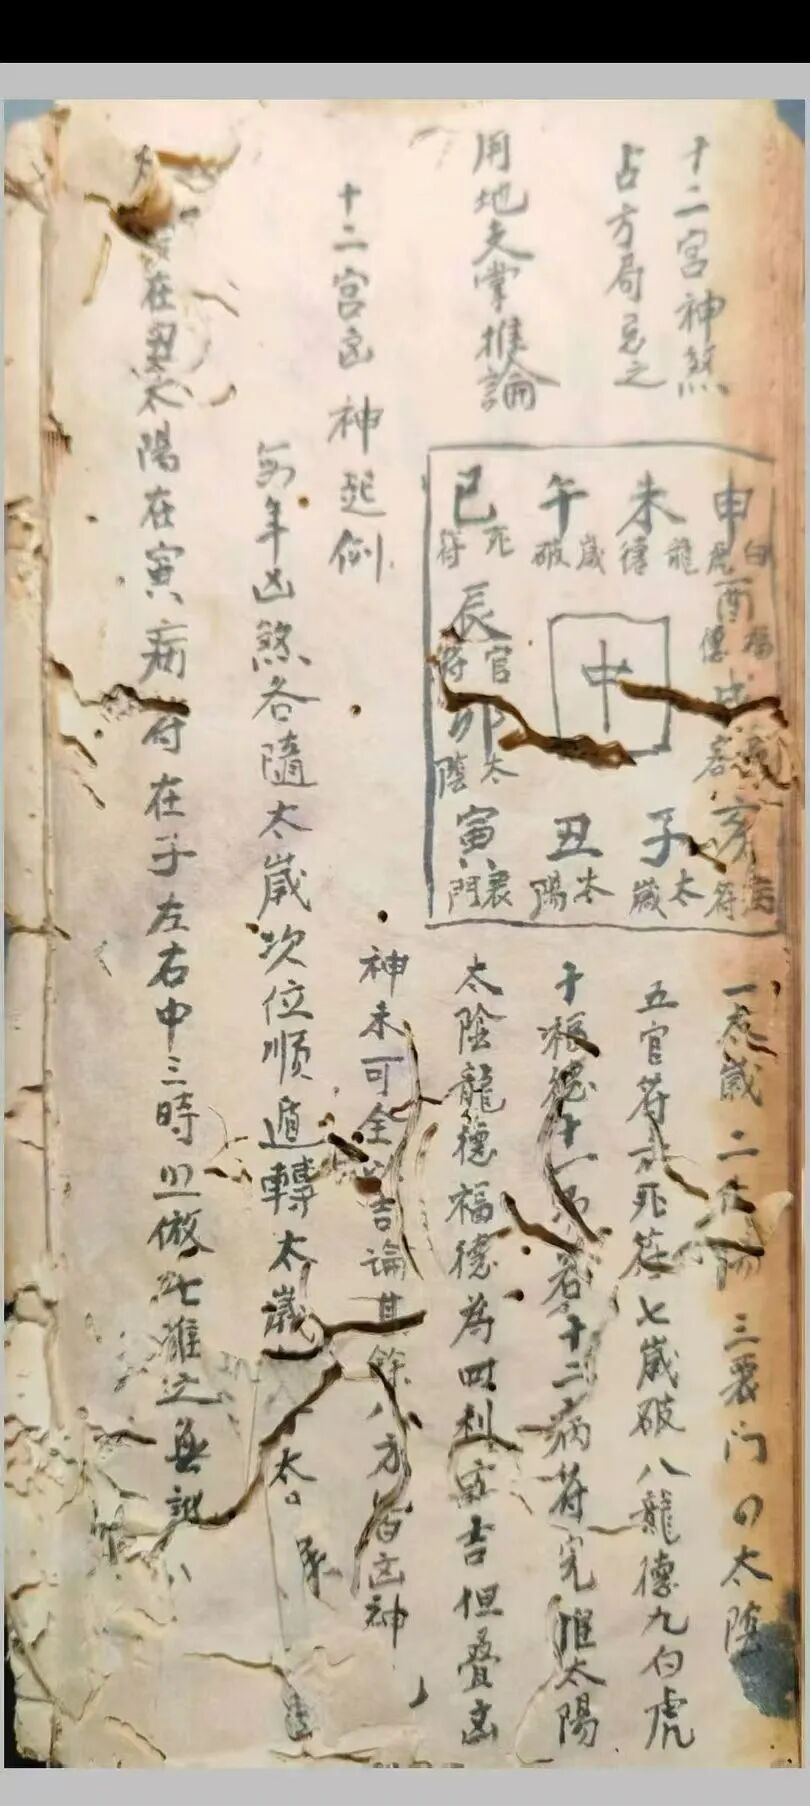 十二宮神煞
占方局忌之
用地支掌推論
巳 午 未 申
死符 歲破 龍德 白虎
辰 酉
官符 福德
中
卯 戌
太陰 客
寅 丑 子 亥
喪門 太陽 太歲 病符
一太歲二太陽三喪门四太陰
五官符六死符七歲破八龍德九白虎
十福德十一客十二病符完惟太陽
太陰龍德福德為四利宮吉但叠凶
神未可全吉論其餘八方皆凶神
十二宮凶神起例
每年凶煞各隨太歲次位順遁轉太歲太
在丑太陽在寅病符在子左右中三時照倣此推之無訛